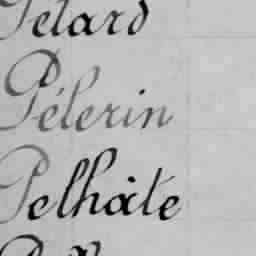 Pelard
Pélerin
Pelhàte